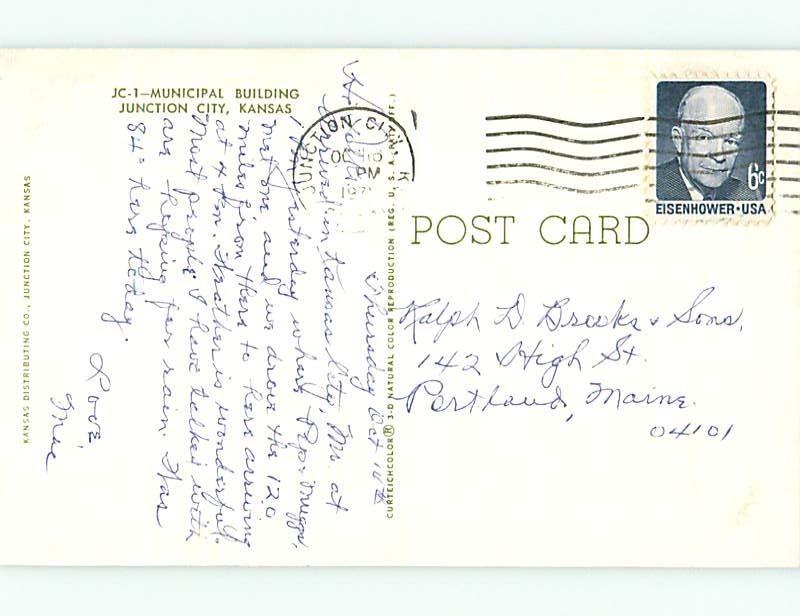 JC-1—MUNICIPAL BUILDING
JUNCTION CITY, KANSAS
KANSAS DISTRIBUTING CO., JUNCTION CITY, KANSAS
Thursday Oct 10th
Hi
Arrived in Kansas City, Mo. at
yesterday where Pep & Muggs
met me and we drove the 120
miles from there to here arriving
at 4 P.m. Weather is wonderful.
Most people I have talked with
are hoping for rain. Was
84° here today.
Love,
Mae
CURTEICHCOLOR® 3-D NATURAL COLOR REPRODUCTION (REG. U.S.A. PAT. OFF.)
JUNCTION CITY, K
OC
PM
197
POST CARD
6c
EISENHOWER·USA
Ralph D. Brooks & Sons,
142 High St.
Portland, Maine.
04101